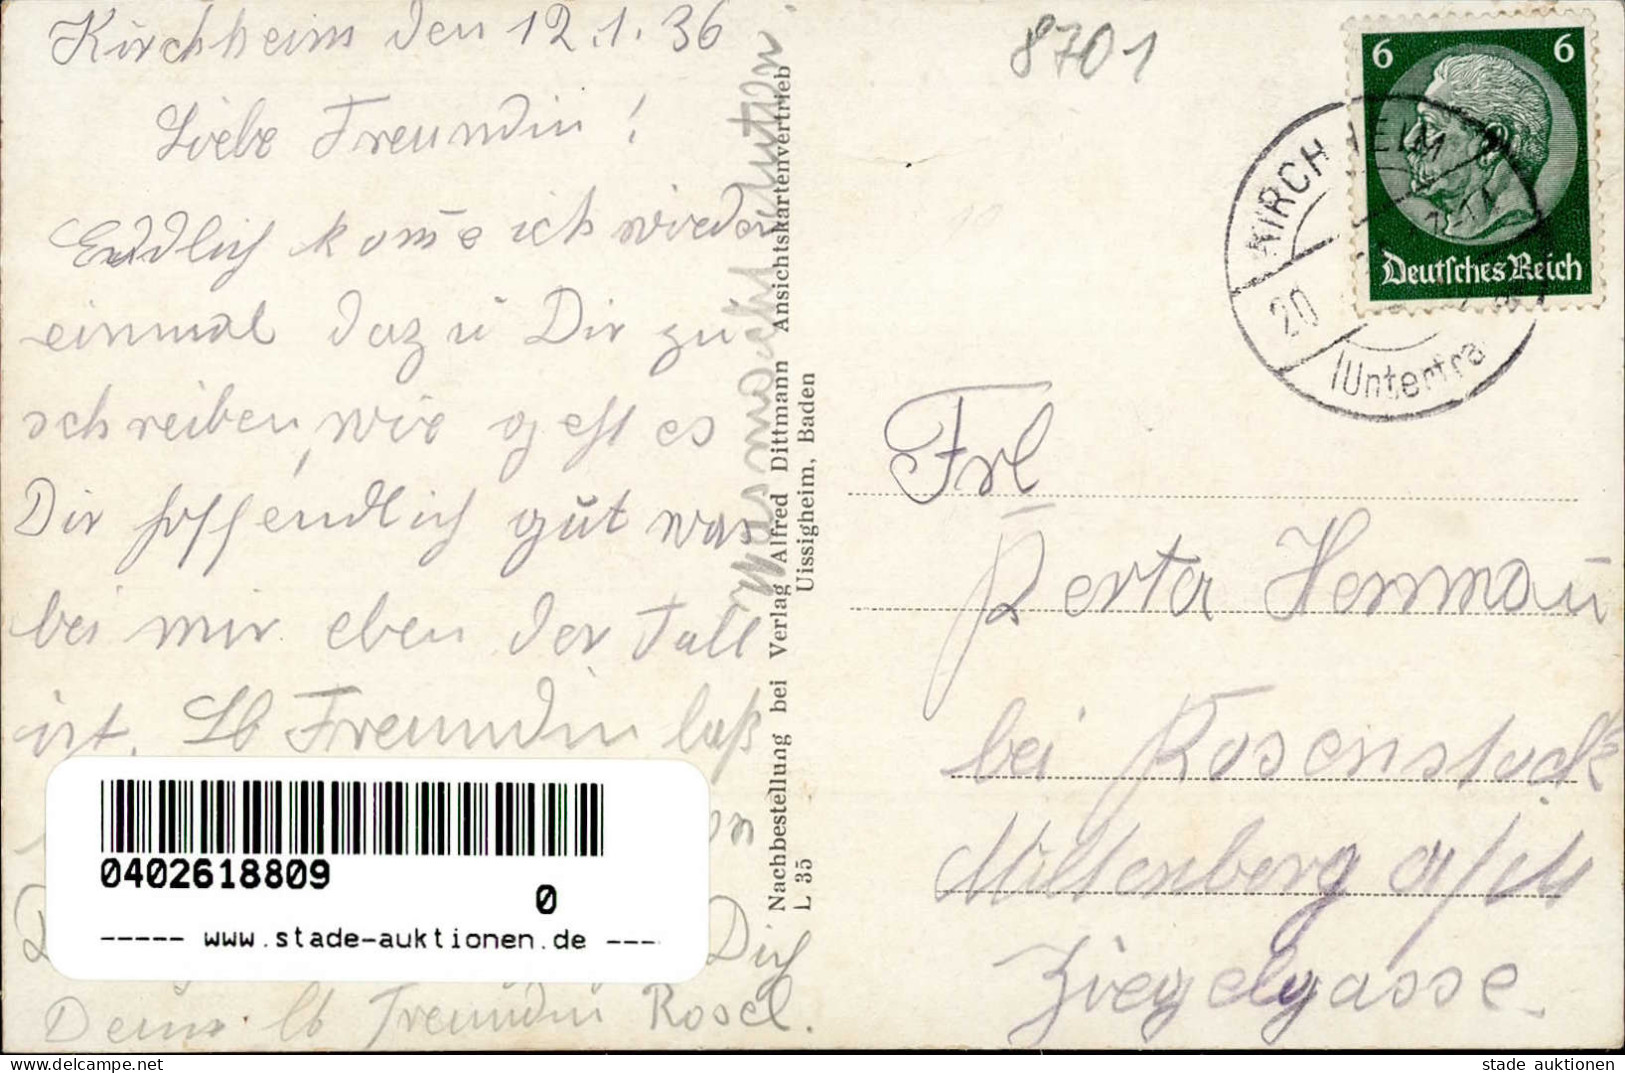 Kirchheim den 12.1.36
Liebe Freundin!
Endlich kom̄e ich wieder
einmal dazu Dir zu
schreiben, wie geht es
Dir hoffendlich gut was
bei mir eben der Fall
ist. Lb Freundin laß
Dich
Deine lb Freundin Rosel.
Was macht
Nachbestellung bei Verlag Alfred Dittmann Ansichtskartenvertrieb
L 35 Uissigheim, Baden
8701
6 6
Deutsches Reich
KIRCHHEIM
20
(Unterfra
Frl
Berta Hermmau
bei Rosenstock
Miltenberg a/M
Ziegelgasse.
0402618809
0
----- www.stade-auktionen.de ---
www.delcampe.net
stade auktionen